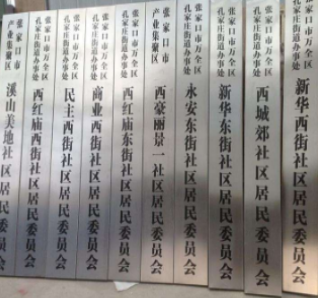 张家口市
产业集聚区
溪山美地社区居民委员会
张家口市万全区
孔家庄街道办事处
西红庙西街社区居民委员会
张家口市万全区
孔家庄街道办事处
民主西街社区居民委员会
张家口市万全区
孔家庄街道办事处
商业西街社区居民委员会
张家口市万全区
孔家庄街道办事处
西红庙东街社区居民委员会
张家口市
产业集聚区
西豪丽景一社区居民委员会
张家口市万全区
孔家庄街道办事处
永安东街社区居民委员会
张家口市万全区
孔家庄街道办事处
新华东街社区居民委员会
张家口市万全区
孔家庄街道办事处
西城郊社区居民委员会
张家口市万全区
孔家庄街道办事处
新华西街社区居民委员会